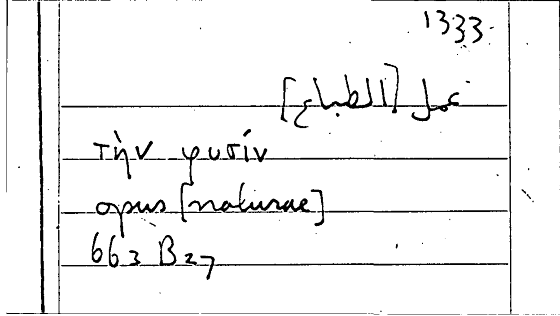 1333
عمل [الطباع]
τὴν φυσίν
opus [naturae]
663 B27